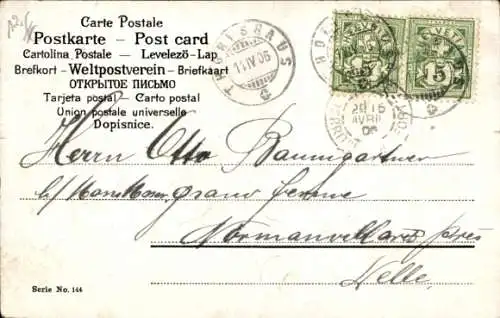 Carte Postale
Postkarte – Post card
Cartolina Postale – Levelező-Lap
Brefkort – Weltpostverein – Briefkaart
ОТКРЫТОЕ ПИСЬМО
Tarjeta postal – Carto postal
Union postale universelle
Dopisnice.
THÖRISHAUS
11 IV 06
HELVETIA
5
5
16
AVRIL
06
Herrn Otto Baumgartner
grand ferme
Normanvillars près
Delle.
Serie No. 144